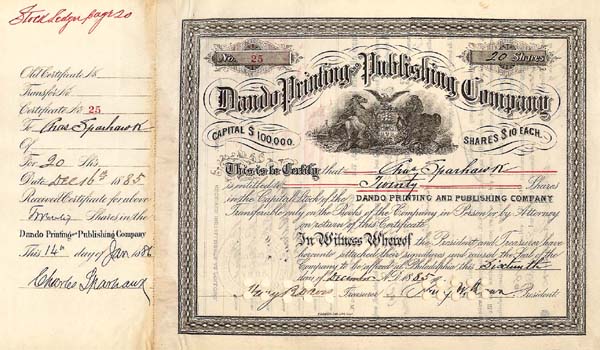 Stock Ledger page 20
Old Certificate No
Transfer No
Certificate No 25
To Chas Sparhawk
Of
For 20 Shs
Date Dec 16th 1885
Received Certificate for above
Twenty Shares in the
Dando Printing and Publishing Company
This 14th day of Jan 1886
Charles Sparhawk
No. 25
20 Shares
Dando Printing and Publishing Company
CAPITAL $100.000.
SHARES $10 EACH.
This is to Certify that Chas Sparhawk
is entitled to Twenty Shares
in the Capital Stock of the DANDO PRINTING AND PUBLISHING COMPANY
Transferable only on the Books of the Company in Person or by Attorney
on return of this Certificate
In Witness Whereof the President and Treasurer have
hereunto attached their signatures and caused the Seal of the
Company to be affixed at Philadelphia this Sixteenth
day of December A.D. 1885
Treasurer
President